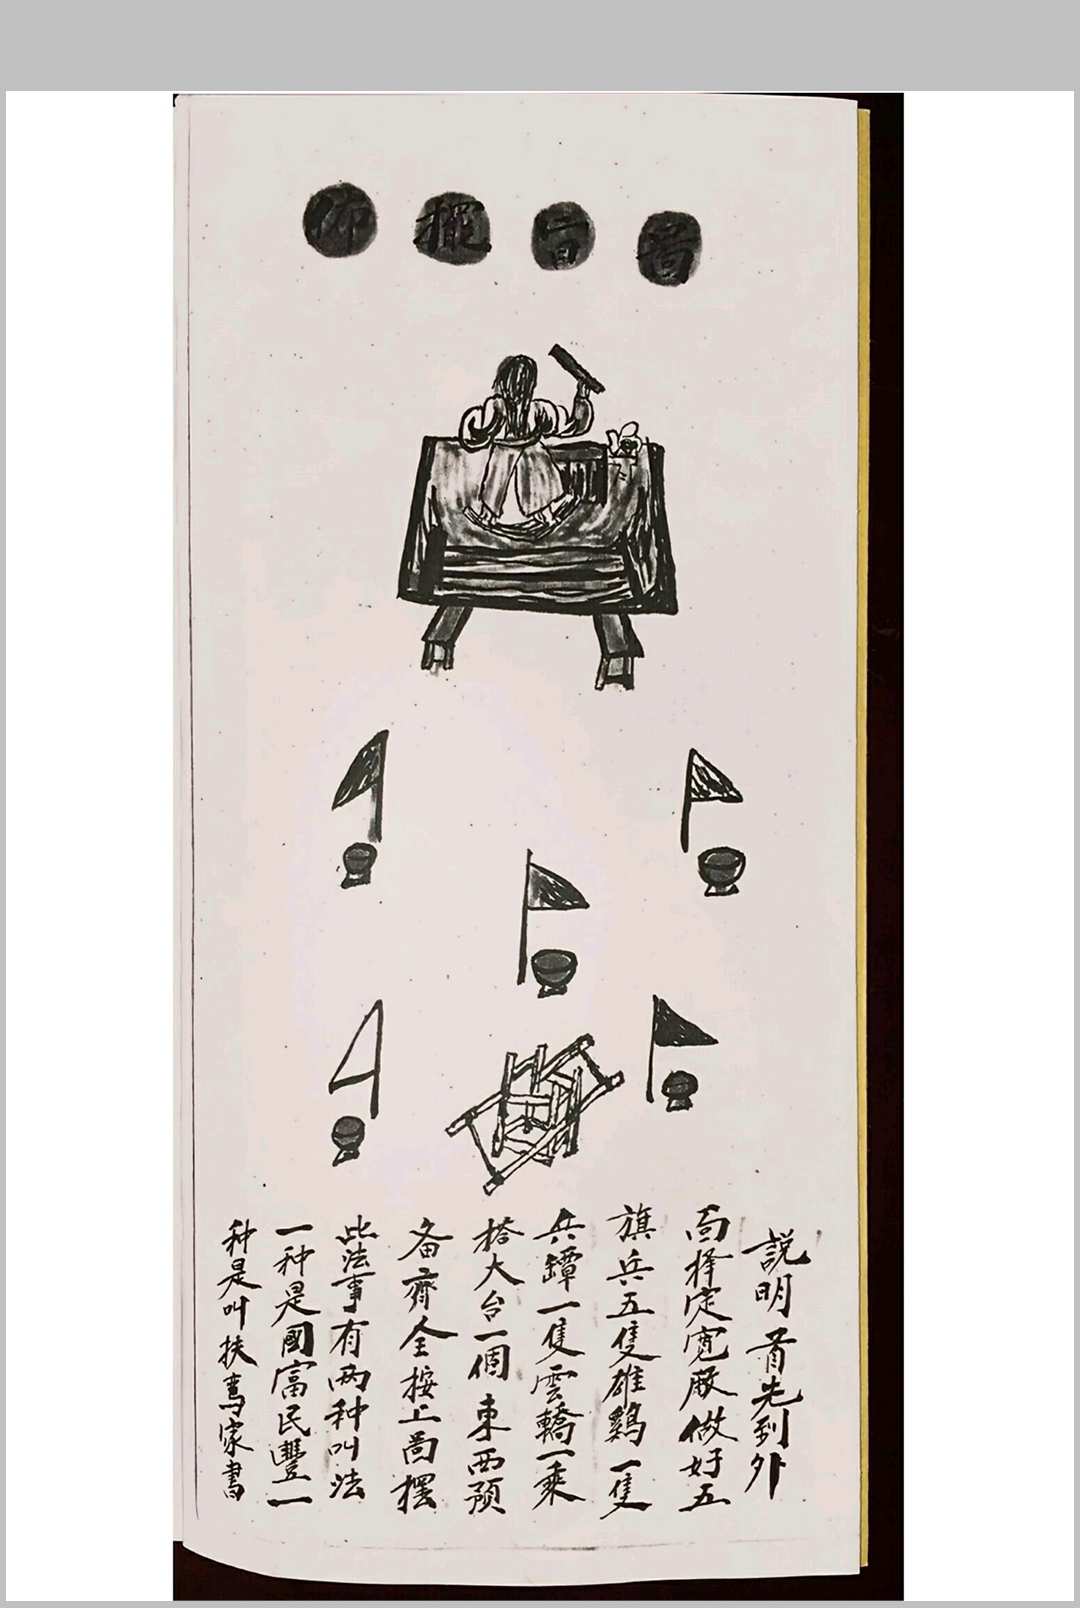 啚旨擺佈
説明首先到外
面择定宽厰做好五
旗兵五隻雄鷄一隻
兵罈一隻雲轎一乘
搭大台一個東西預
备齊全按上啚摆
此法事有两种叫法
一种是國富民豐一
种是叫扶鸾家書